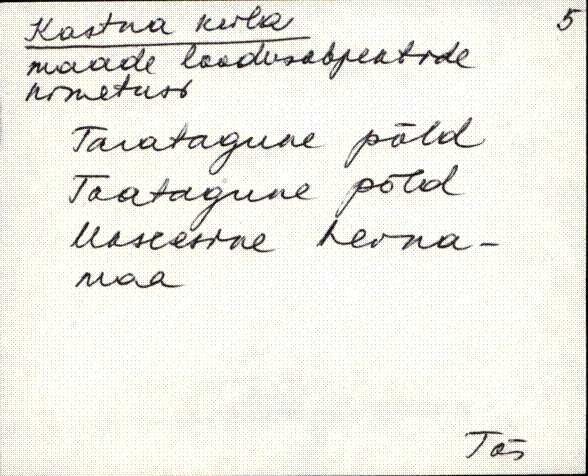 Kastna küla 5
maade loodusobjektide
nimetusi
Taratagune põld
Toatagune põld
Ukseesine heina-
maa
Tõs